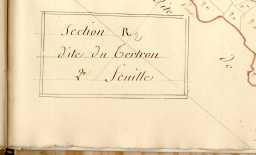 Section R
dite du Tertron
2e feuille
de
de